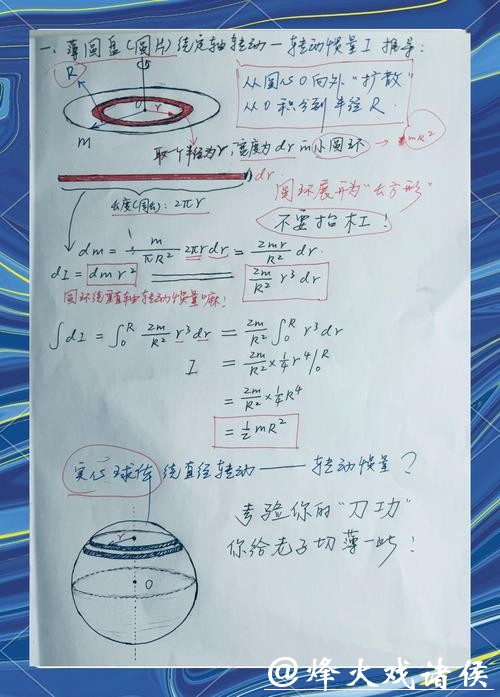 一、薄圆盘(圆片)绕定轴转动—转动惯量I 推导:
R
O
r
m
从圆心O向外“扩散”
从O积分到半径R.
取一个半径为r,宽度为dr的小圆环 → mR²
dr.
长度(周长): 2πr
圆环展开为“长方形”
不要抬杠!
dm = m/πR² 2πr dr = 2mr/R² dr.
dI = dm r² = 2m/R² r³ dr
圆环绕垂直轴转动惯量嘛!
∫dI = ∫₀ᴿ 2m/R² r³ dr = 2m/R² ∫₀ᴿ r³ dr
I = 2m/R² × 1/4 r⁴ |₀ᴿ
= 2m/R² × 1/4 R⁴
= 1/2 mR²
实心球体绕直径转动——转动惯量?
考验你的“刀功”
你给老子切薄一些!
r
O
@烽火戏诸侯